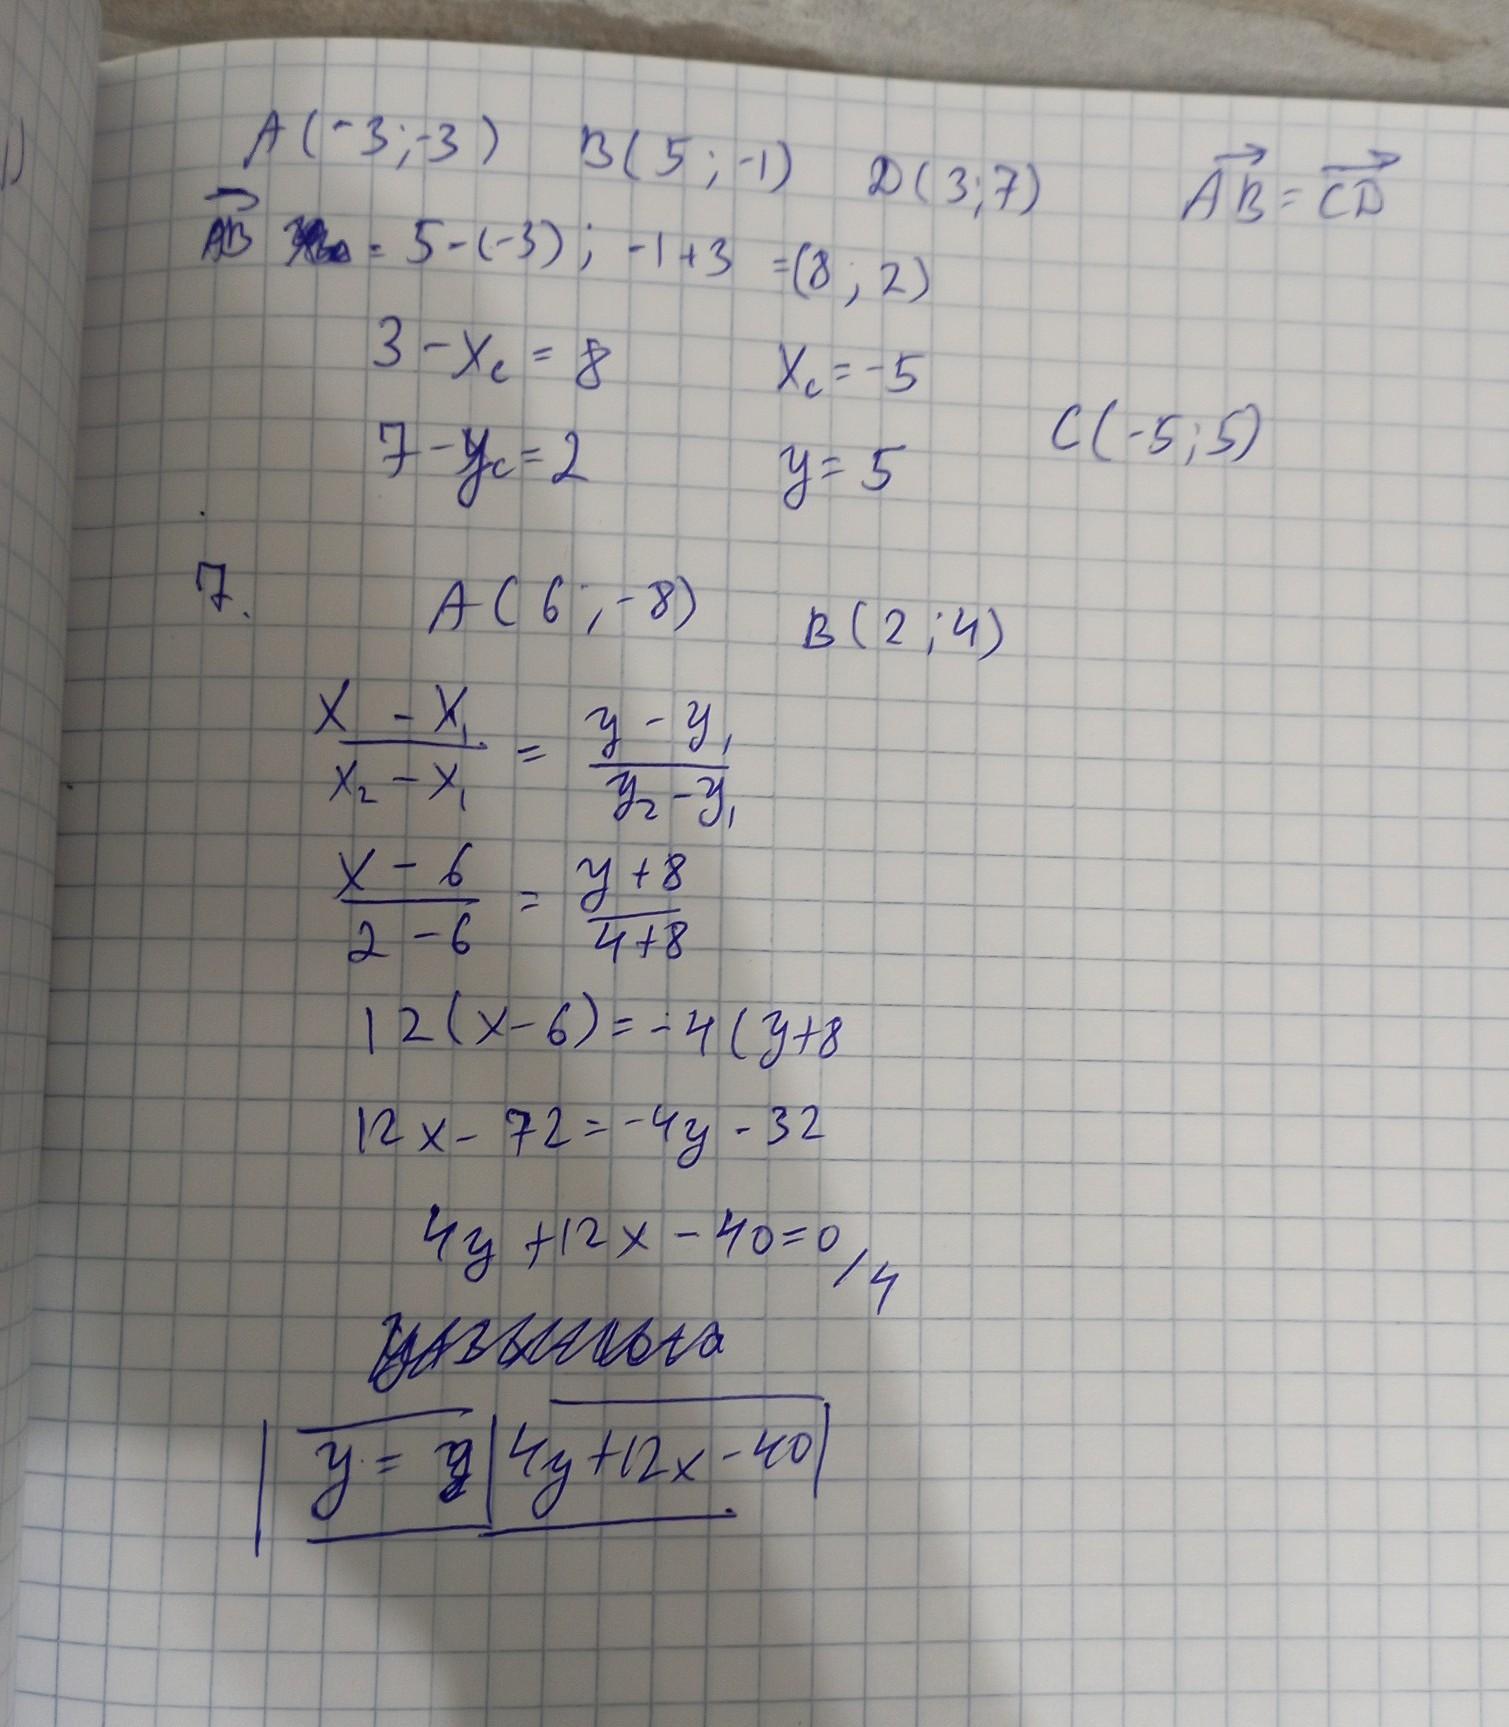 A(-3;-3) B(5;-1) D(3;7) AB=CD
AB = 5-(-3); -1+3 =(8;2)
3-Xc=8 Xc=-5
7-yc=2 y=5 C(-5;5)
7. A(6;-8) B(2;4)
X-X1/X2-X1 = y-y1/y2-y1
X-6/2-6 = y+8/4+8
12(X-6)=-4(y+8
12x-72=-4y-32
4y+12x-40=0/4
y= 4y+12x-40